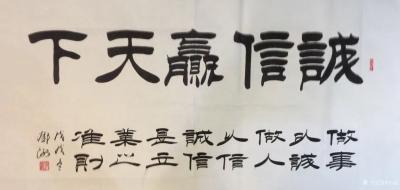 誠信贏天下
做事
以誠
做人
以信
誠信
是立
業之
准則
戊戌冬